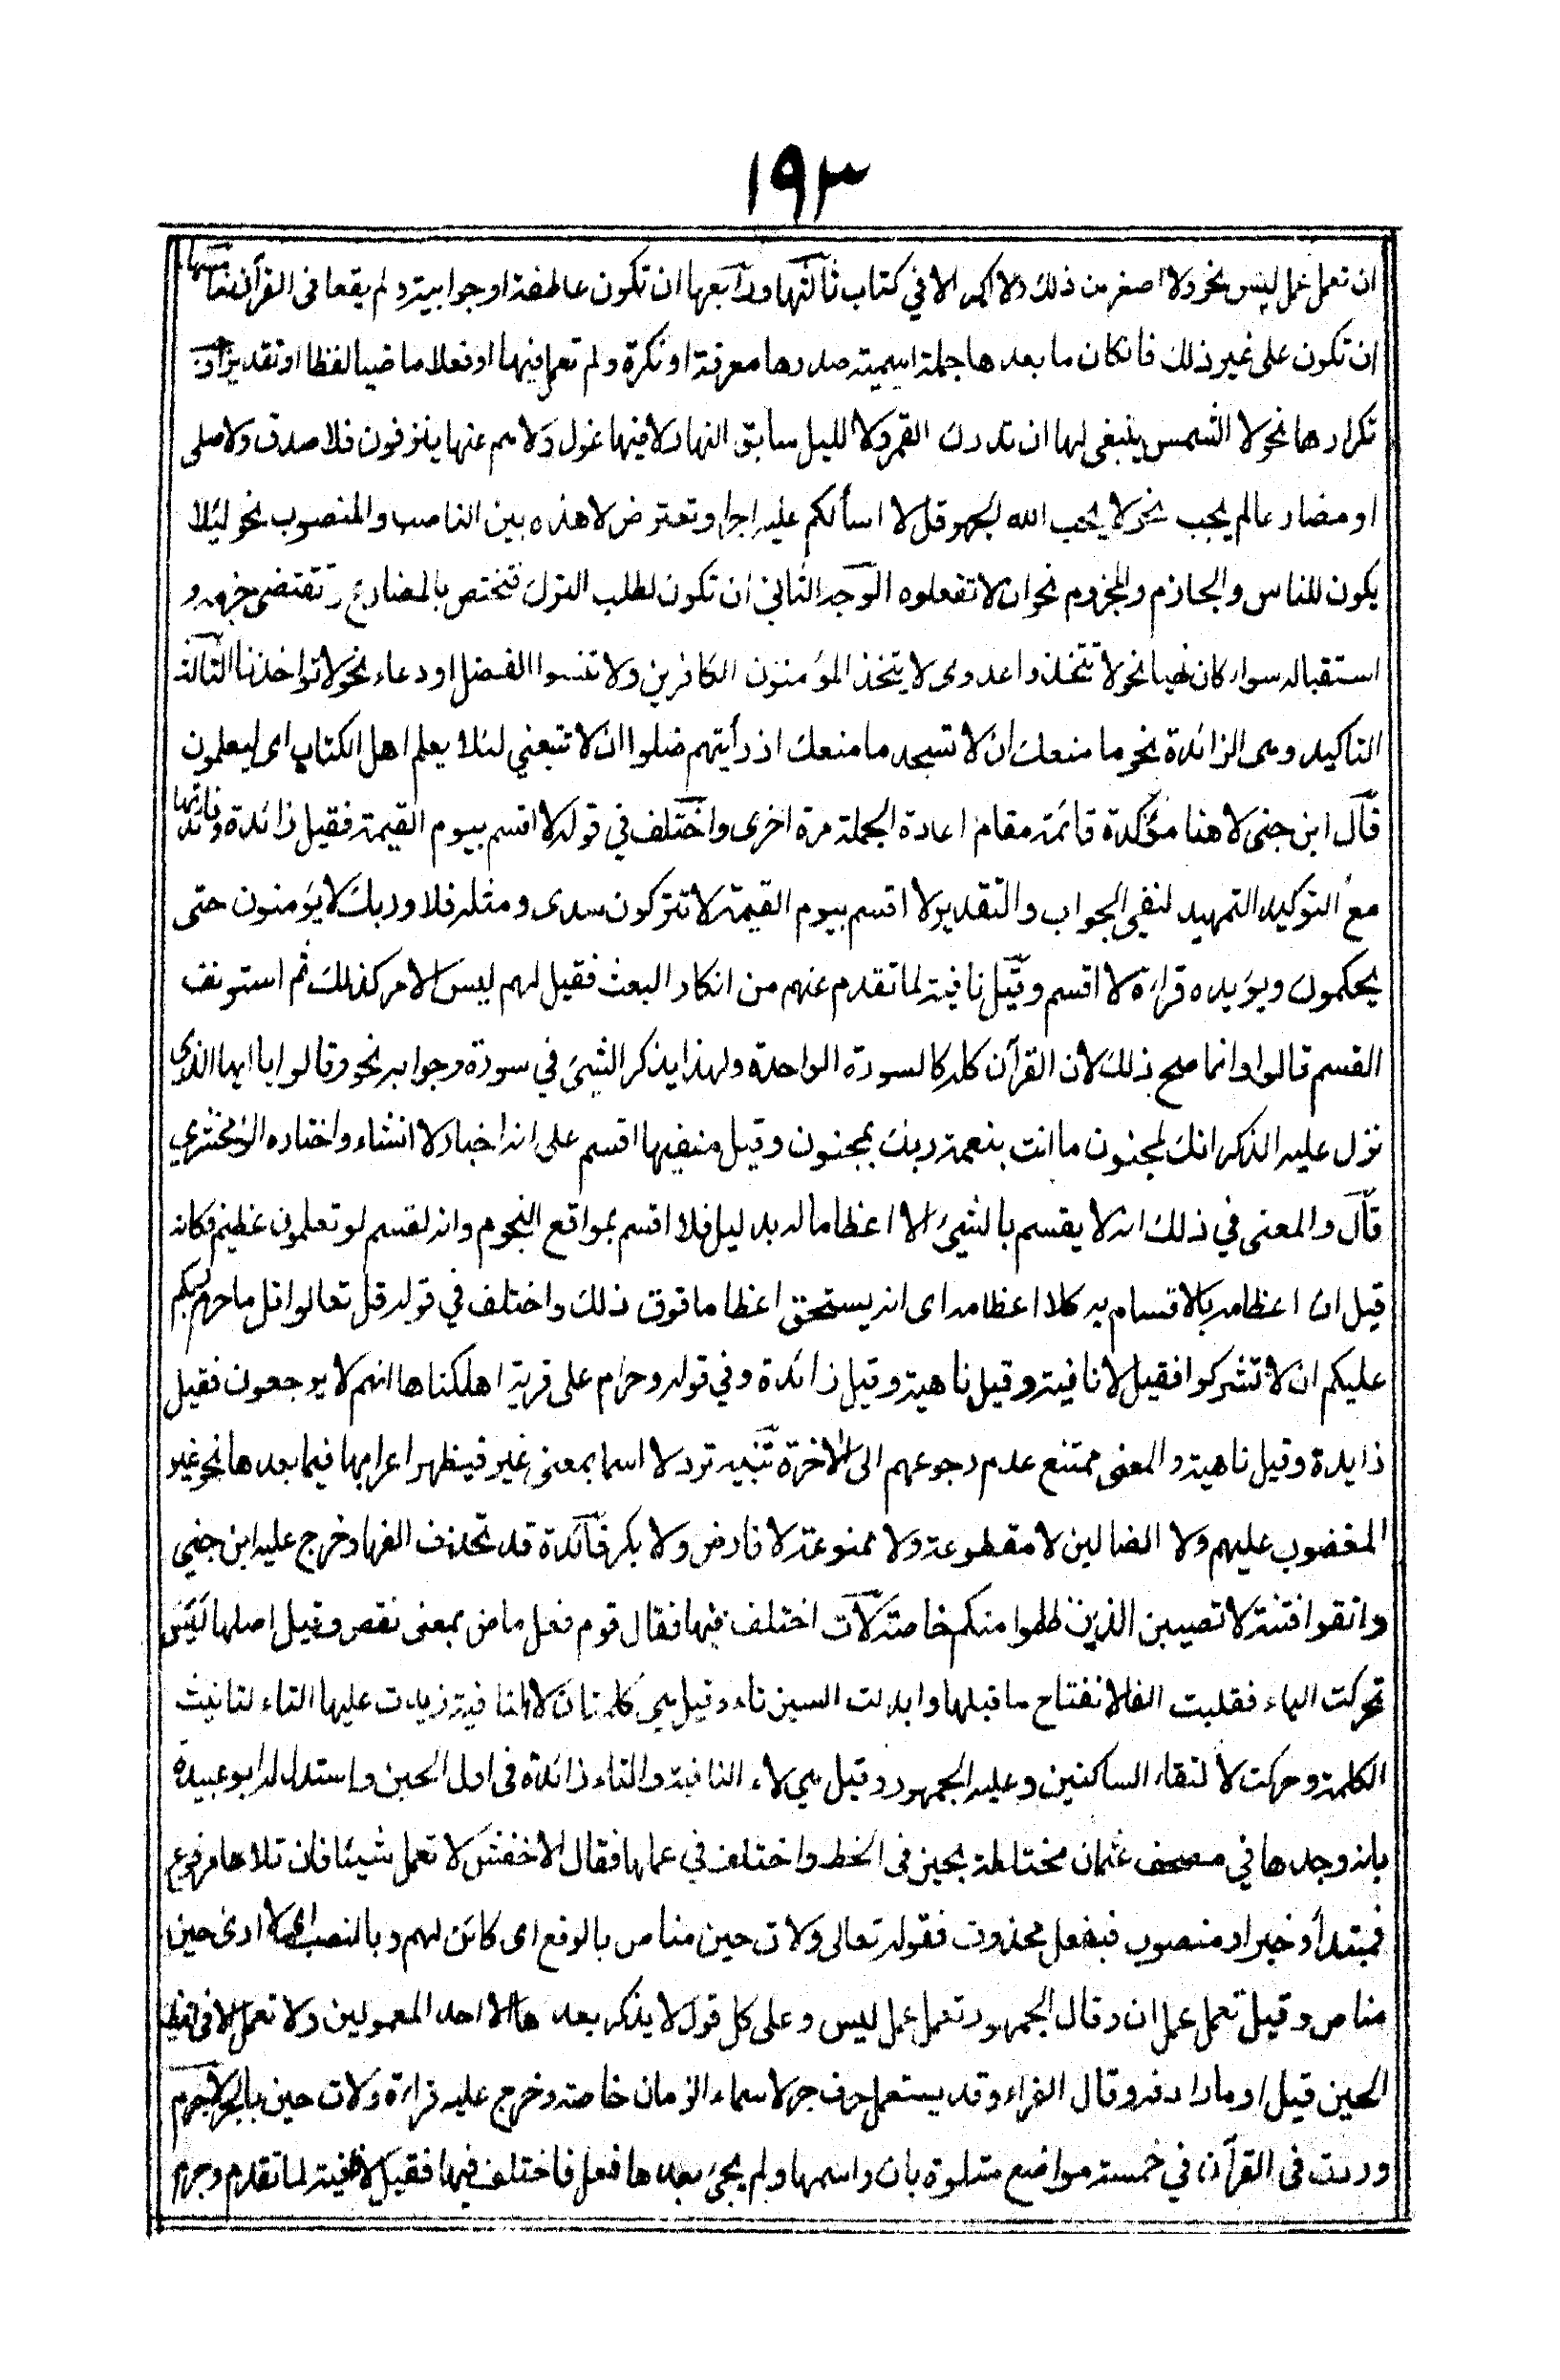 ١٩٣
ان تعمل عمل ليس نحو ولا اصغر من ذلك ولا اكبر الا في كتاب ثالثها ورابعها ان تكون عاطفة او جوابية ولم يقعا فى القرآن خامسها
ان تكون على غير ذلك فان كان ما بعدها جملة اسمية صدرها معرفة او نكرة ولم تعمل فيها او فعلا ماضيا لفظا او تقديرا وجب
تكرارها نحو لا الشمس ينبغى لها ان تدرك القمر ولا الليل سابق النهار لا فيها غول ولا هم عنها ينزفون فلا صدق ولا صلى
او مضارعا لم يجب نحو لا يحب الله الجهر قل لا اسألكم عليه اجرا وتعترض لا هذه بين الناصب والمنصوب نحو لئلا
يكون للناس والجازم والمجزوم نحو ان لا تفعلوه الوجه الثاني ان تكون لطلب الترك فتختص بالمضارع وتقتضى جزمه و
استقباله سواء كان نهيا نحو لا تتخذوا عدوى لا يتخذ المؤمنون الكافرين ولا تنسوا الفضل او دعاء نحو لا تواخذنا الثالث
التاكيد وهى الزائدة نحو ما منعك ان لا تسجد ما منعك اذ رأيتهم ضلوا ان لا تتبعني لئلا يعلم اهل الكتاب اى ليعلموا
قال ابن جنى لا هنا مؤكدة قائمة مقام اعادة الجملة مرة اخرى واختلف في قوله لا اقسم بيوم القيمة فقيل زائدة وفائدتها
مع التوكيد التمهيد لنفي الجواب والتقدير لا اقسم بيوم القيمة لا تتركون سدى ومثله فلا وربك لا يؤمنون حتى
يحكموك ويؤيده قراءة لا اقسم وقيل نافية لما تقدم عنهم من انكار البعث فقيل لهم ليس الامر كذلك ثم استونف
القسم قالوا وانما صح ذلك لان القرآن كله كالسورة الواحدة ولهذا يذكر الشئ في سورة وجوابه نحو وقالوا يا ايها الذى
نزل عليه الذكر انك لمجنون ما انت بنعمة ربك بمجنون وقيل منفيها اقسم على انه اخبار لا انشاء واختاره الزمخشري
قال والمعنى في ذلك انه لا يقسم بالشئ الا اعظاما له بدليل فلا اقسم بمواقع النجوم وانه لقسم لو تعلمون عظيم فكانه
قيل ان اعظامه بالاقسام به كلا اعظامه اى انه يستحق اعظاما فوق ذلك واختلف في قوله قل تعالوا اتل ما حرم ربكم
عليكم ان لا تشركوا فقيل لا نافية وقيل ناهية وقيل زائدة وفي قوله وحرام على قرية اهلكناها انهم لا يرجعون فقيل
زايدة وقيل ناهية والمعنى ممتنع عدم رجوعهم الى الآخرة تنبيه ترد لا اسما بمعنى غير فيظهر اعرابها فيما بعدها نحو غير
المغضوب عليهم ولا الضالين لا مقطوعة ولا ممنوعة لا فارض ولا بكر فائدة قد تحذف الفها وخرج عليه ابن جنى
واتقوا فتنة لا تصيبن الذين ظلموا منكم خاصة لات اختلف فيها فقال قوم فعل ماض بمعنى نقص وقيل اصلها ليس
تحركت الياء فقلبت الفا لانفتاح ما قبلها وابدلت السين تاء وقيل هي كلمتان لا النافية زيدت عليها التاء لتانيث
الكلمة وحركت لالتقاء الساكنين وعليه الجمهور وقيل هي لاء النافية والتاء زائدة فى اول الحين واستدل له ابو عبيدة
بانه وجدها في مصحف عثمان مختلطة بحين فى الخط واختلف في عملها فقال الاخفش لا تعمل شيئا فان تلاها مرفوع
فمبتدأ وخبر او منصوب فبفعل محذوف فقوله تعالى ولات حين مناص بالرفع اى كائن لهم وبالنصب اى لا ارى حين
مناص وقيل تعمل عمل ان وقال الجمهور تعمل عمل ليس وعلى كل قول لا يذكر بعدها الا احد المعمولين ولا تعمل الا فى لفظ
الحين قيل او ما رادفه وقال الفراء وقد يستعمل حرف جر لاسماء الزمان خاصة وخرج عليه قراءة ولات حين بالجر لا جرم
وردت فى القرآن في خمسة مواضع متلوة بان واسمها ولم يجئ بعدها فعل فاختلف فيها فقيل لا نافية لما تقدم وجرم